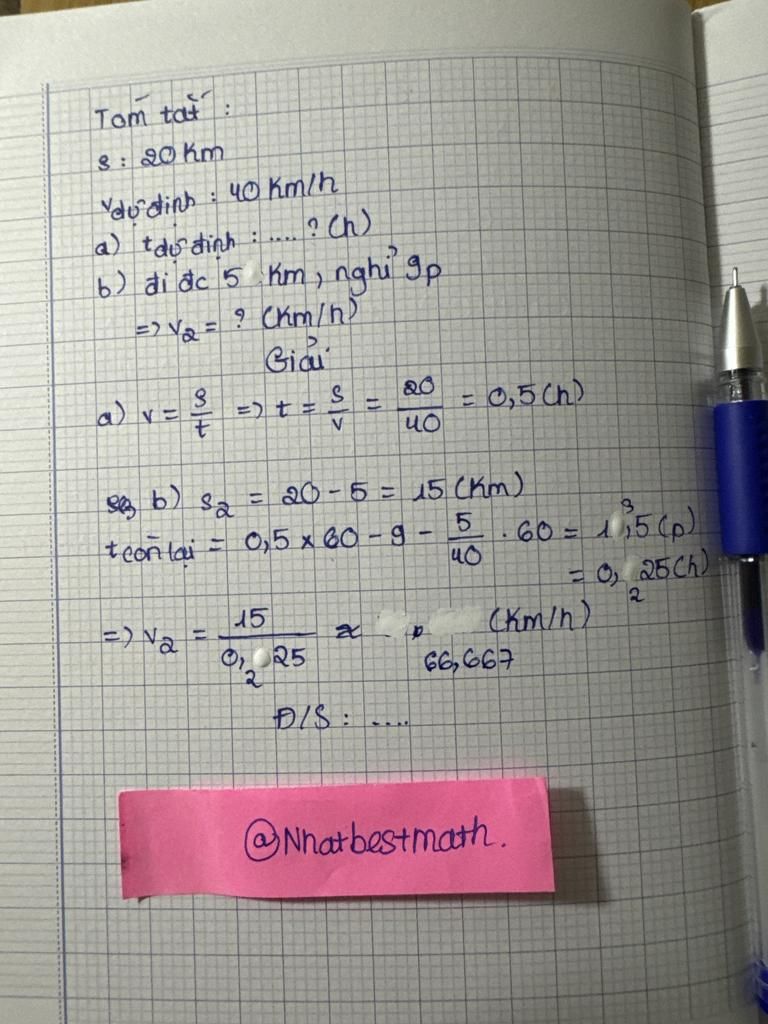 Tóm tắt :
s : 20 Km
vdự định : 40 Km/h
a) tdự định : .... ? (h)
b) đi đc 5 Km, nghỉ 9p
=> v2 = ? (Km/h)
Giải
a) v = s/t => t = s/v = 20/40 = 0,5 (h)
b) s2 = 20 - 5 = 15 (Km)
tcòn lại = 0,5 x 60 - 9 - 5/40 . 60 = 13,5 (p)
= 0,225 (h)
=> v2 = 15/0,225 ≈ 66,667 (Km/h)
Đ/S : ....
@Nhatbestmath.